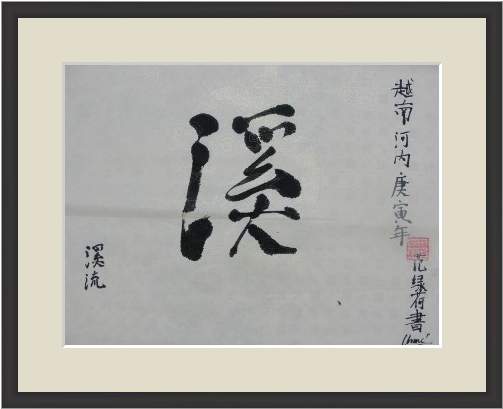 溪
越南河内庚寅年
范緑荷書
溪流